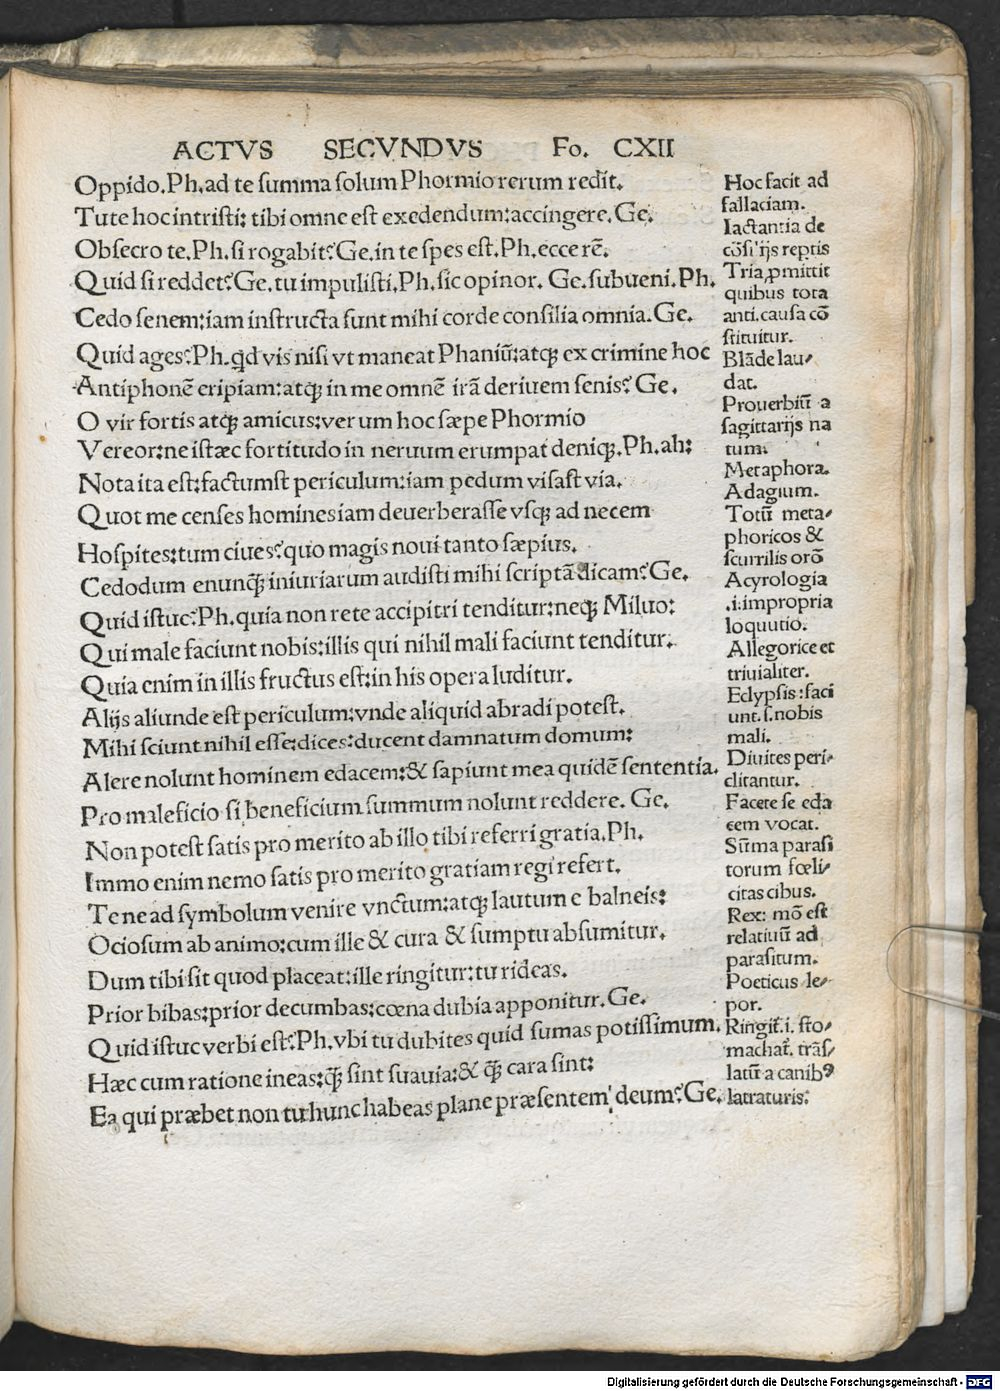 ACTVS SECVNDVS Fo. CXII
Oppido.Ph.ad te summa solum Phormio rerum redit.
Tute hoc intristi: tibi omne est exedendum:accingere.Ge.
Obsecro te.Ph.si rogabit?Ge.in te spes est.Ph.ecce rē.
Quid si reddet?Ge.tu impulisti.Ph.sic opinor. Ge.subueni.Ph.
Cedo senem:iam instructa sunt mihi corde consilia omnia.Ge.
Quid ages?Ph.qd vis nisi vt maneat Phaniū:atq; ex crimine hoc
Antiphonē eripiam:atq; in me omnē irā deriuem senis? Ge.
O vir fortis atq; amicus:verum hoc sæpe Phormio
Vereor:ne istæc fortitudo in neruum erumpat deniq;.Ph.ah:
Nota ita est:factumst periculum:iam pedum visast via.
Quot me censes homines iam deuerberasse vsq; ad necem
Hospites:tum ciues?quo magis noui tanto sæpius.
Cedodum enunq̃ iniuriarum audisti mihi scriptā dicam?Ge.
Quid istuc?Ph.quia non rete accipitri tenditur:neq; Miluo:
Qui male faciunt nobis:illis qui nihil mali faciunt tenditur.
Quia enim in illis fructus est:in his opera luditur.
Alijs aliunde est periculum:vnde aliquid abradi potest.
Mihi sciunt nihil esse:dices:ducent damnatum domum:
Alere nolunt hominem edacem:& sapiunt mea quidē sententia.
Pro maleficio si beneficium summum nolunt reddere. Ge.
Non potest satis pro merito ab illo tibi referri gratia.Ph.
Immo enim nemo satis pro merito gratiam regi refert.
Te ne ad symbolum venire vnctum:atq; lautum e balneis:
Ociosum ab animo:cum ille & cura & sumptu absumitur.
Dum tibi sit quod placeat:ille ringitur:tu rideas.
Prior bibas:prior decumbas:cœna dubia apponitur.Ge.
Quid istuc verbi est?Ph.vbi tu dubites quid sumas potissimum.
Hæc cum ratione ineas:q̃ sint suauia:& q̃ cara sint:
Ea qui præbet non tu hunc habeas plane præsentem deum?Ge.
Hoc facit ad
fallaciam.
Iactantia de
cōsi'ijs reptis
Tria pmittit
quibus tota
anti.causa cō
stituitur.
Blāde lau/
dat.
Prouerbiū a
sagittarijs na
tum.
Metaphora.
Adagium.
Totū meta/
phoricos &
scurrilis orō
Acyrologia
.i.impropria
loquutio.
Allegorice et
triuialiter.
Eclypsis:faci
unt.s.nobis
mali.
Diuites peri/
clitantur.
Facete se eda
cem vocat.
Sūma parasi
torum fœli/
citas cibus.
Rex: mō est
relatiuū ad
parasitum.
Poeticus le/
por.
Ringit̄.i. sto/
machat̄. trās/
latū a canibꝰ
latraturis:
Digitalisierung gefördert durch die Deutsche Forschungsgemeinschaft - DFG